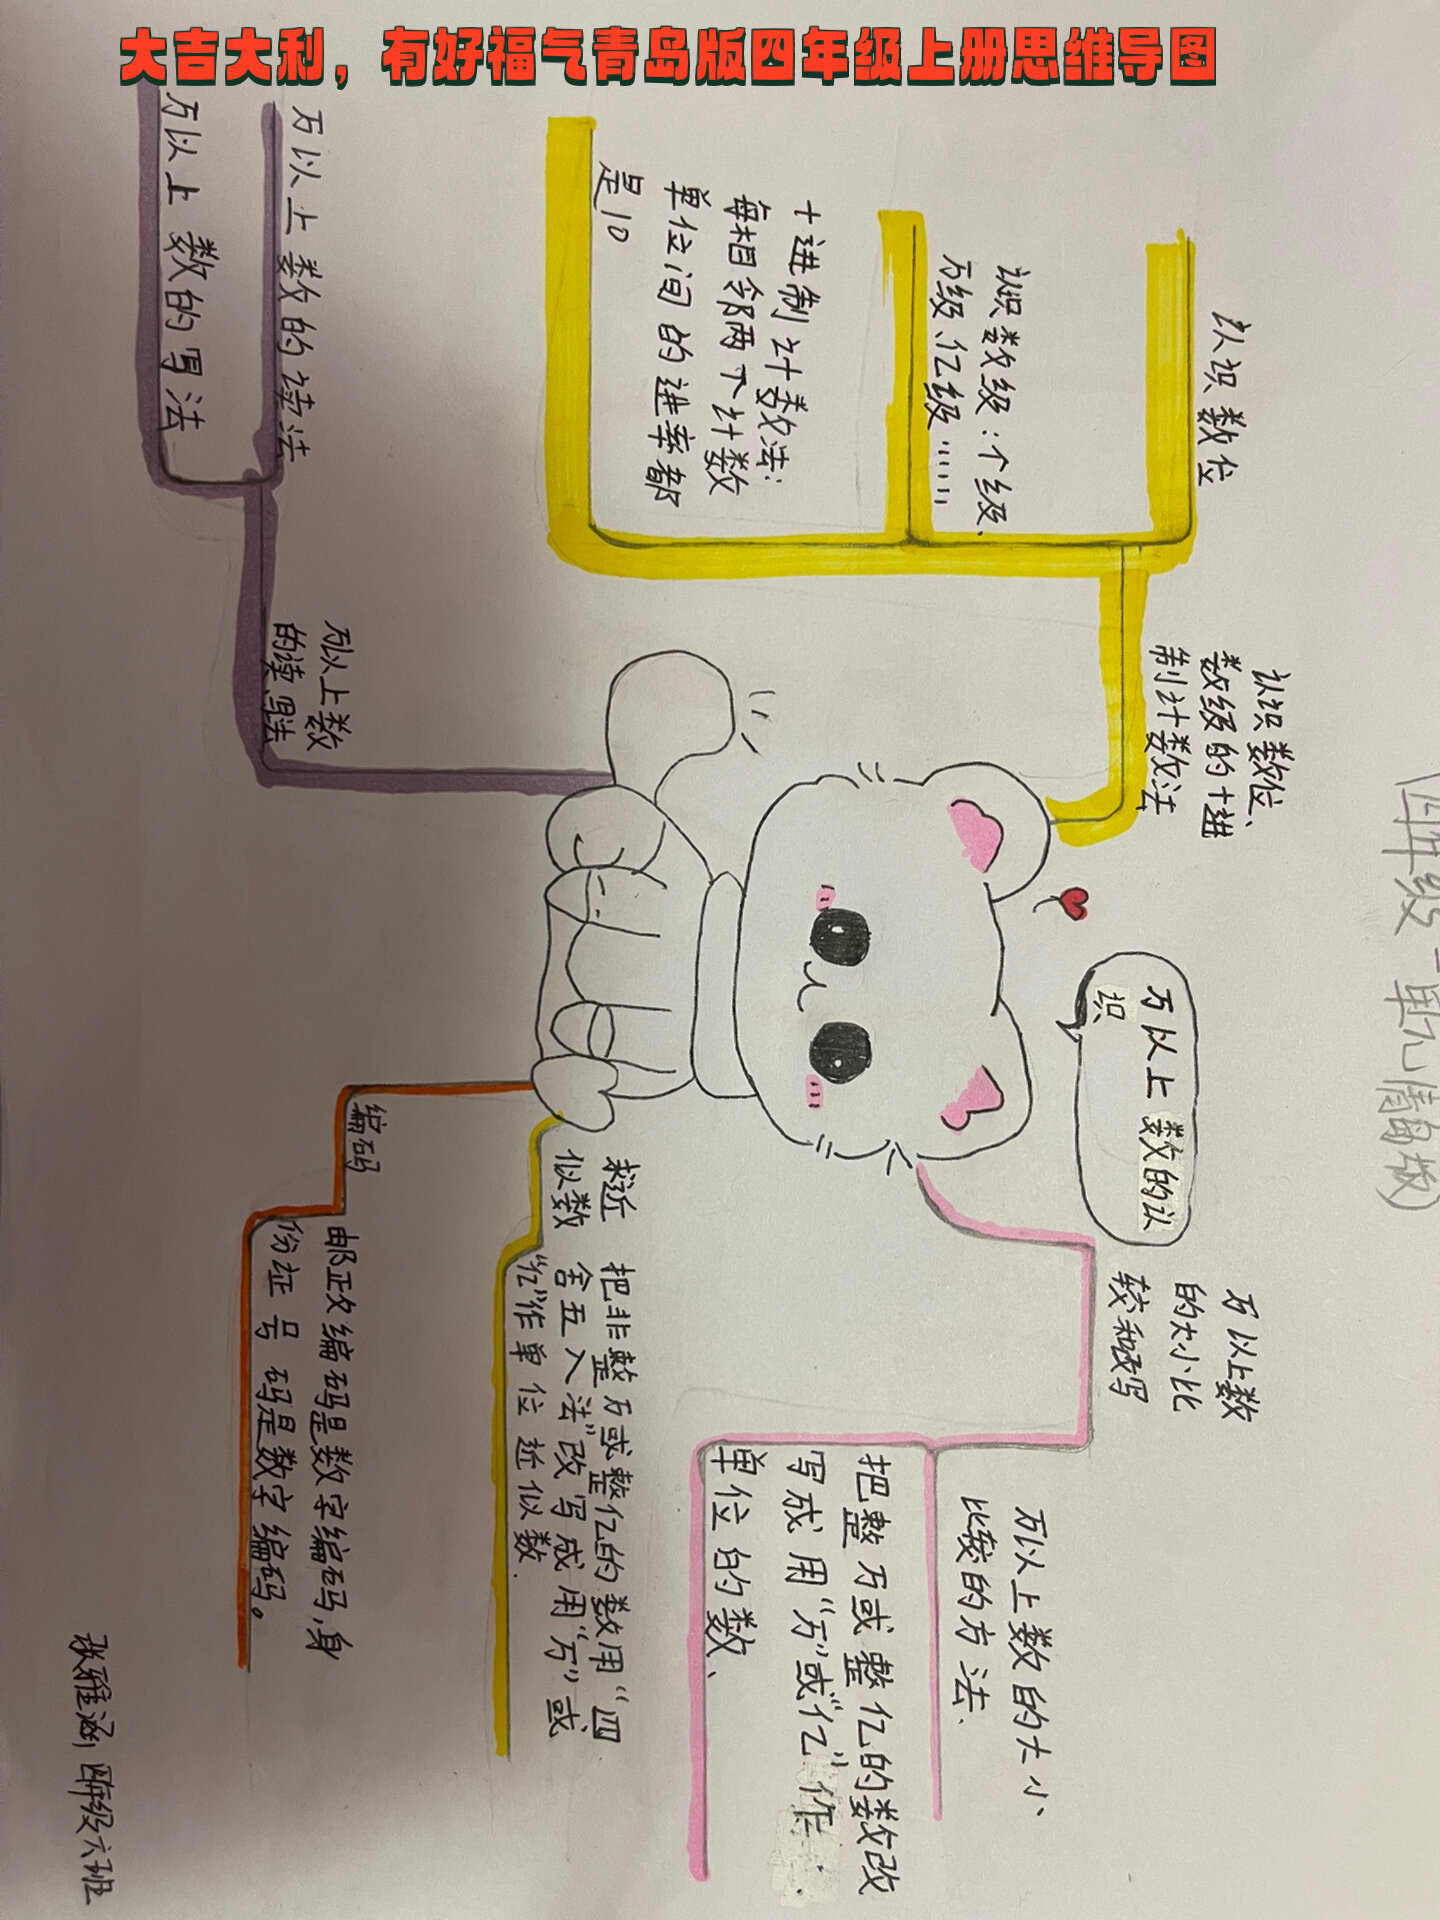 大吉大利，有好福气青岛版四年级上册思维导图
四年级一单元(青岛版)
万以上数的认
识
认识数位、
数级的十进
制计数法
认识数位
认识数级：个级、
万级、亿级……
十进制计数法：
每相邻两个计数
单位间的进率都
是10
万以上数
的读写法
万以上数的读法
万以上数的写法
万以上数
的大小比
较和改写
万以上数的大小
比较的方法.
把整万或整亿的数改
写成用“万”或“亿”作
单位的数、
求近
似数
把非整万或整亿的数用“四
舍五入法”改写成用“万”或
“亿”作单位近似数.
编码
邮政编码是数字编码,身
份证号码是数字编码。
张雅涵 四年级六班